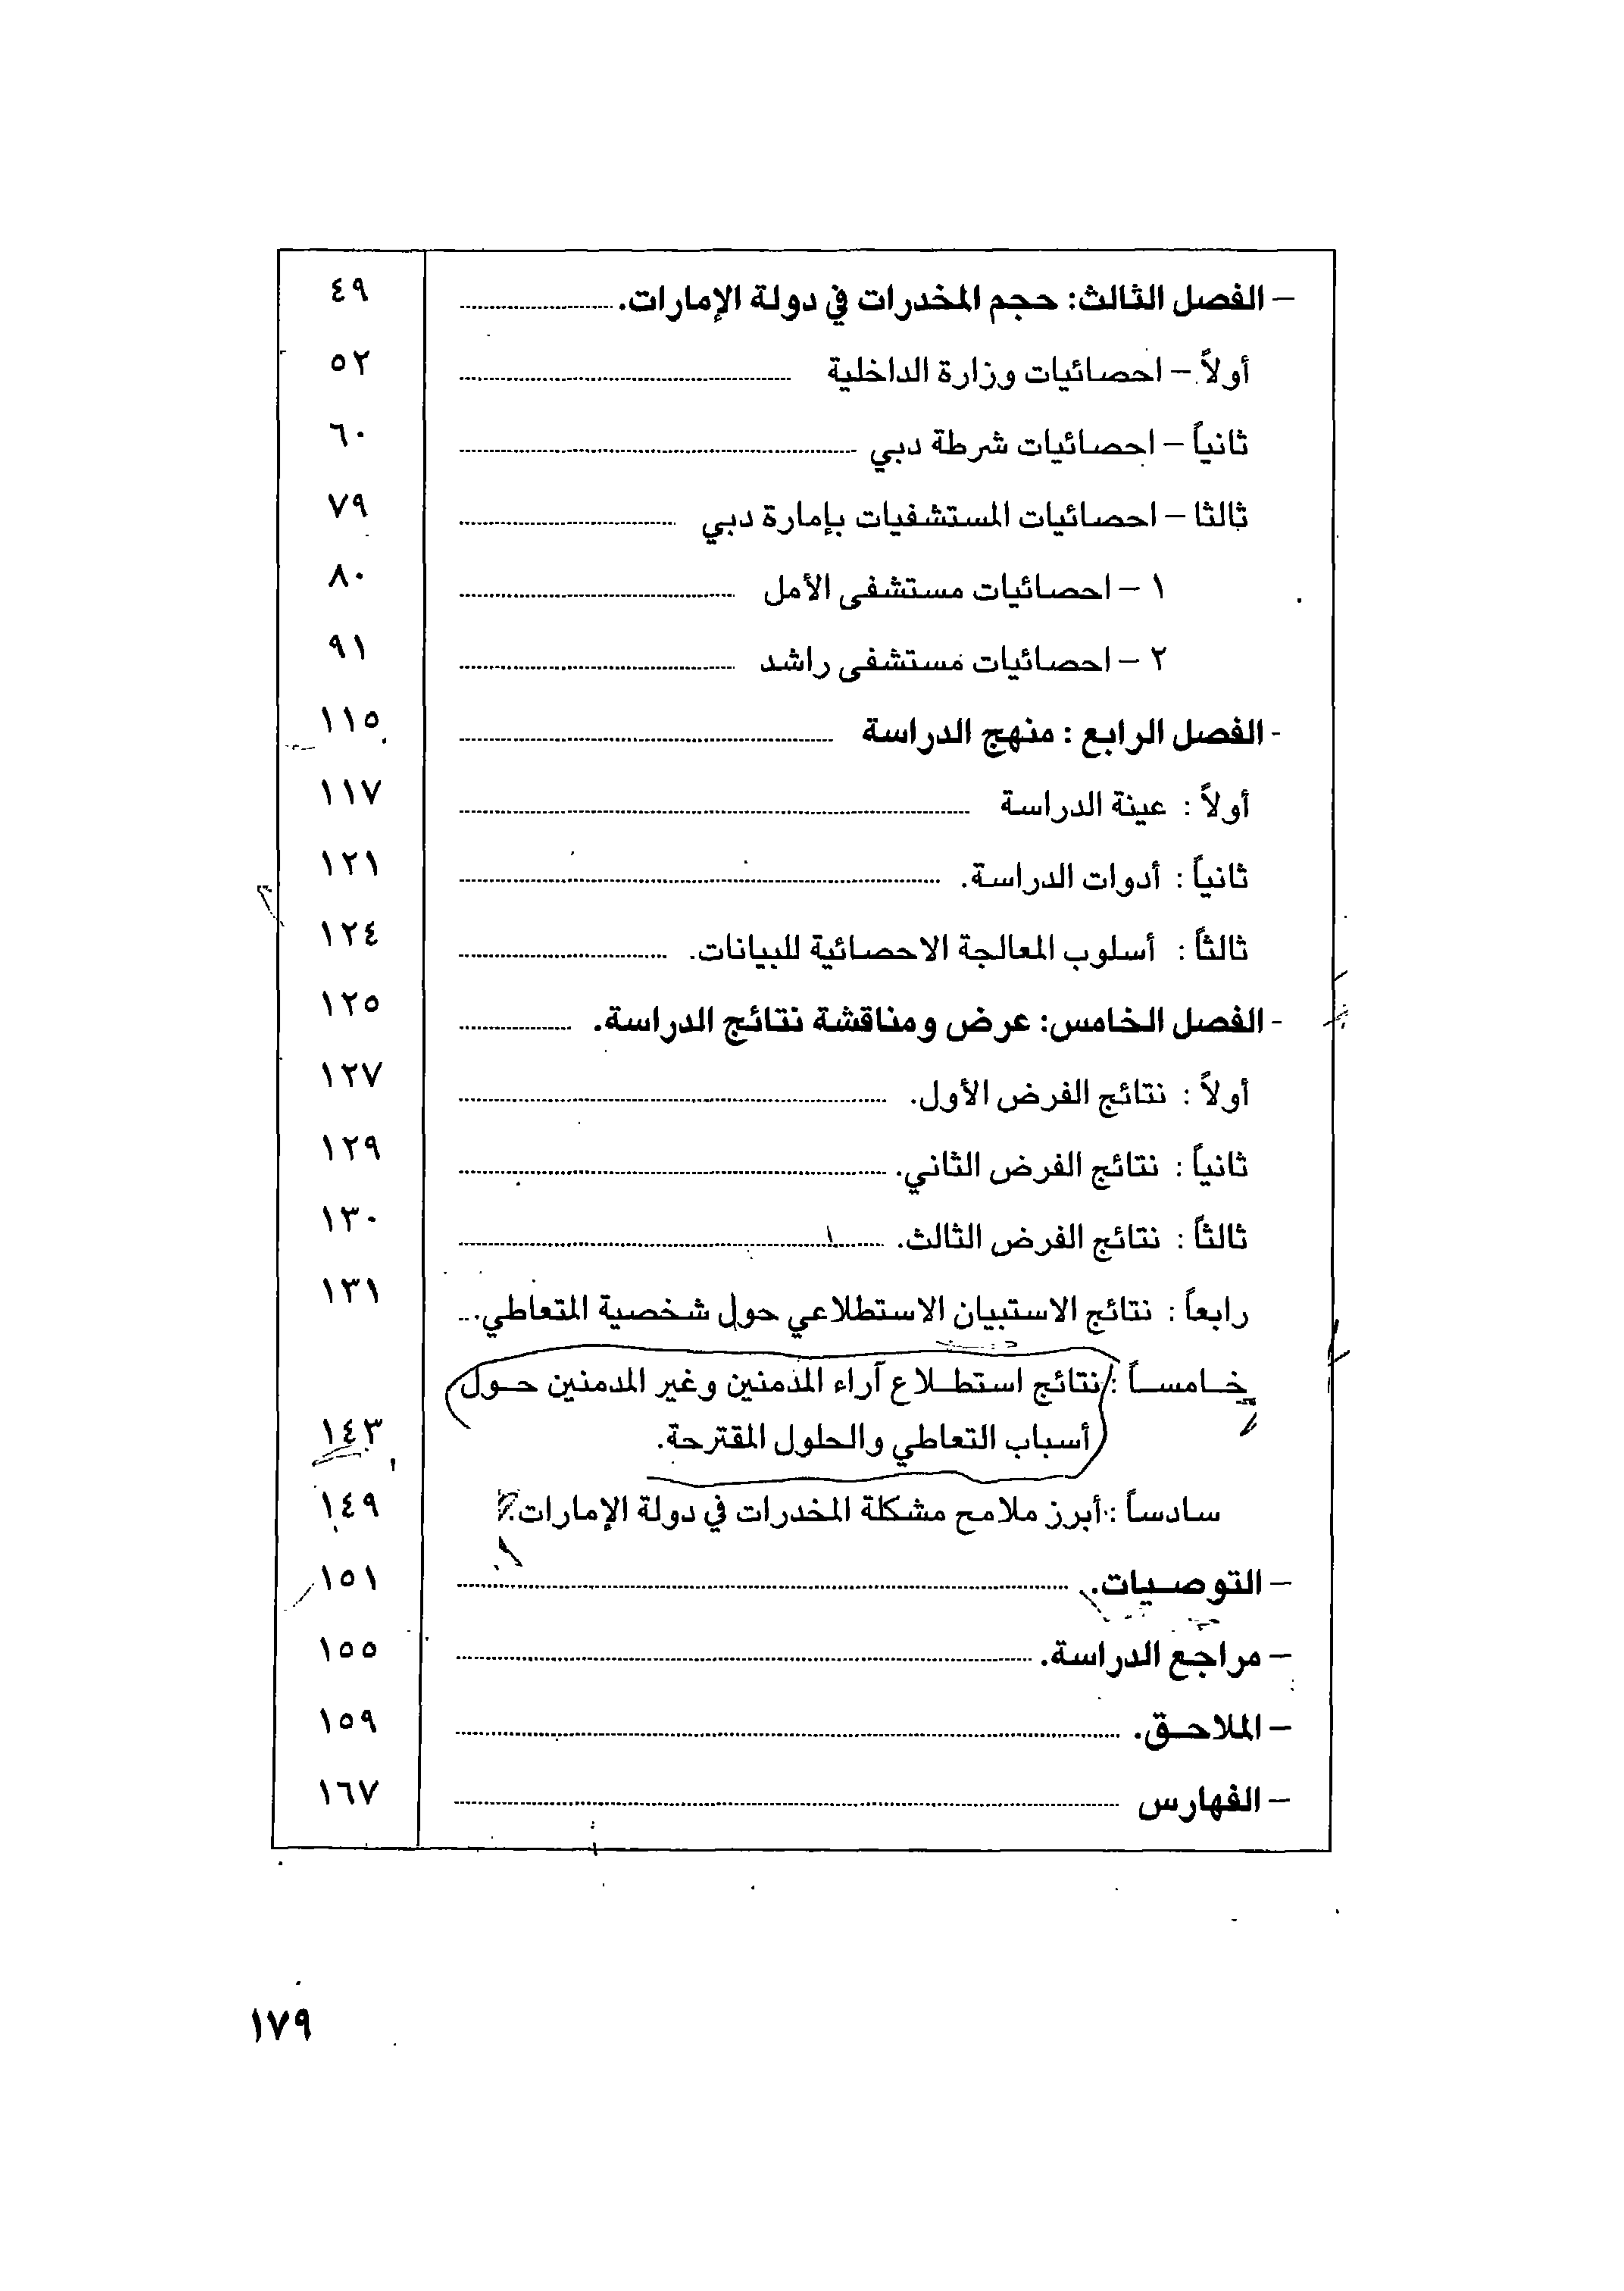 – الفصل الثالث: حجم المخدرات في دولة الإمارات. ٤٩
أولاً – احصائيات وزارة الداخلية ٥٢
ثانياً – احصائيات شرطة دبي ٦٠
ثالثا – احصائيات المستشفيات بإمارة دبي ٧٩
١ – احصائيات مستشفى الأمل ٨٠
٢ – احصائيات مستشفى راشد ٩١
- الفصل الرابع : منهج الدراسة ١١٥
أولاً : عينة الدراسة ١١٧
ثانياً : أدوات الدراسة. ١٢١
ثالثاً : أسلوب المعالجة الاحصائية للبيانات. ١٢٤
- الفصل الخامس: عرض ومناقشة نتائج الدراسة. ١٢٥
أولاً : نتائج الفرض الأول. ١٢٧
ثانياً : نتائج الفرض الثاني. ١٢٩
ثالثاً : نتائج الفرض الثالث. ١٣٠
رابعاً : نتائج الاستبيان الاستطلاعي حول شخصية المتعاطي. ١٣١
خامساً : نتائج استطلاع آراء المدمنين وغير المدمنين حول
أسباب التعاطي والحلول المقترحة. ١٤٣
سادساً : أبرز ملامح مشكلة المخدرات في دولة الإمارات. ١٤٩
– التوصيات. ١٥١
– مراجع الدراسة. ١٥٥
– الملاحق. ١٥٩
– الفهارس ١٦٧
١٧٩